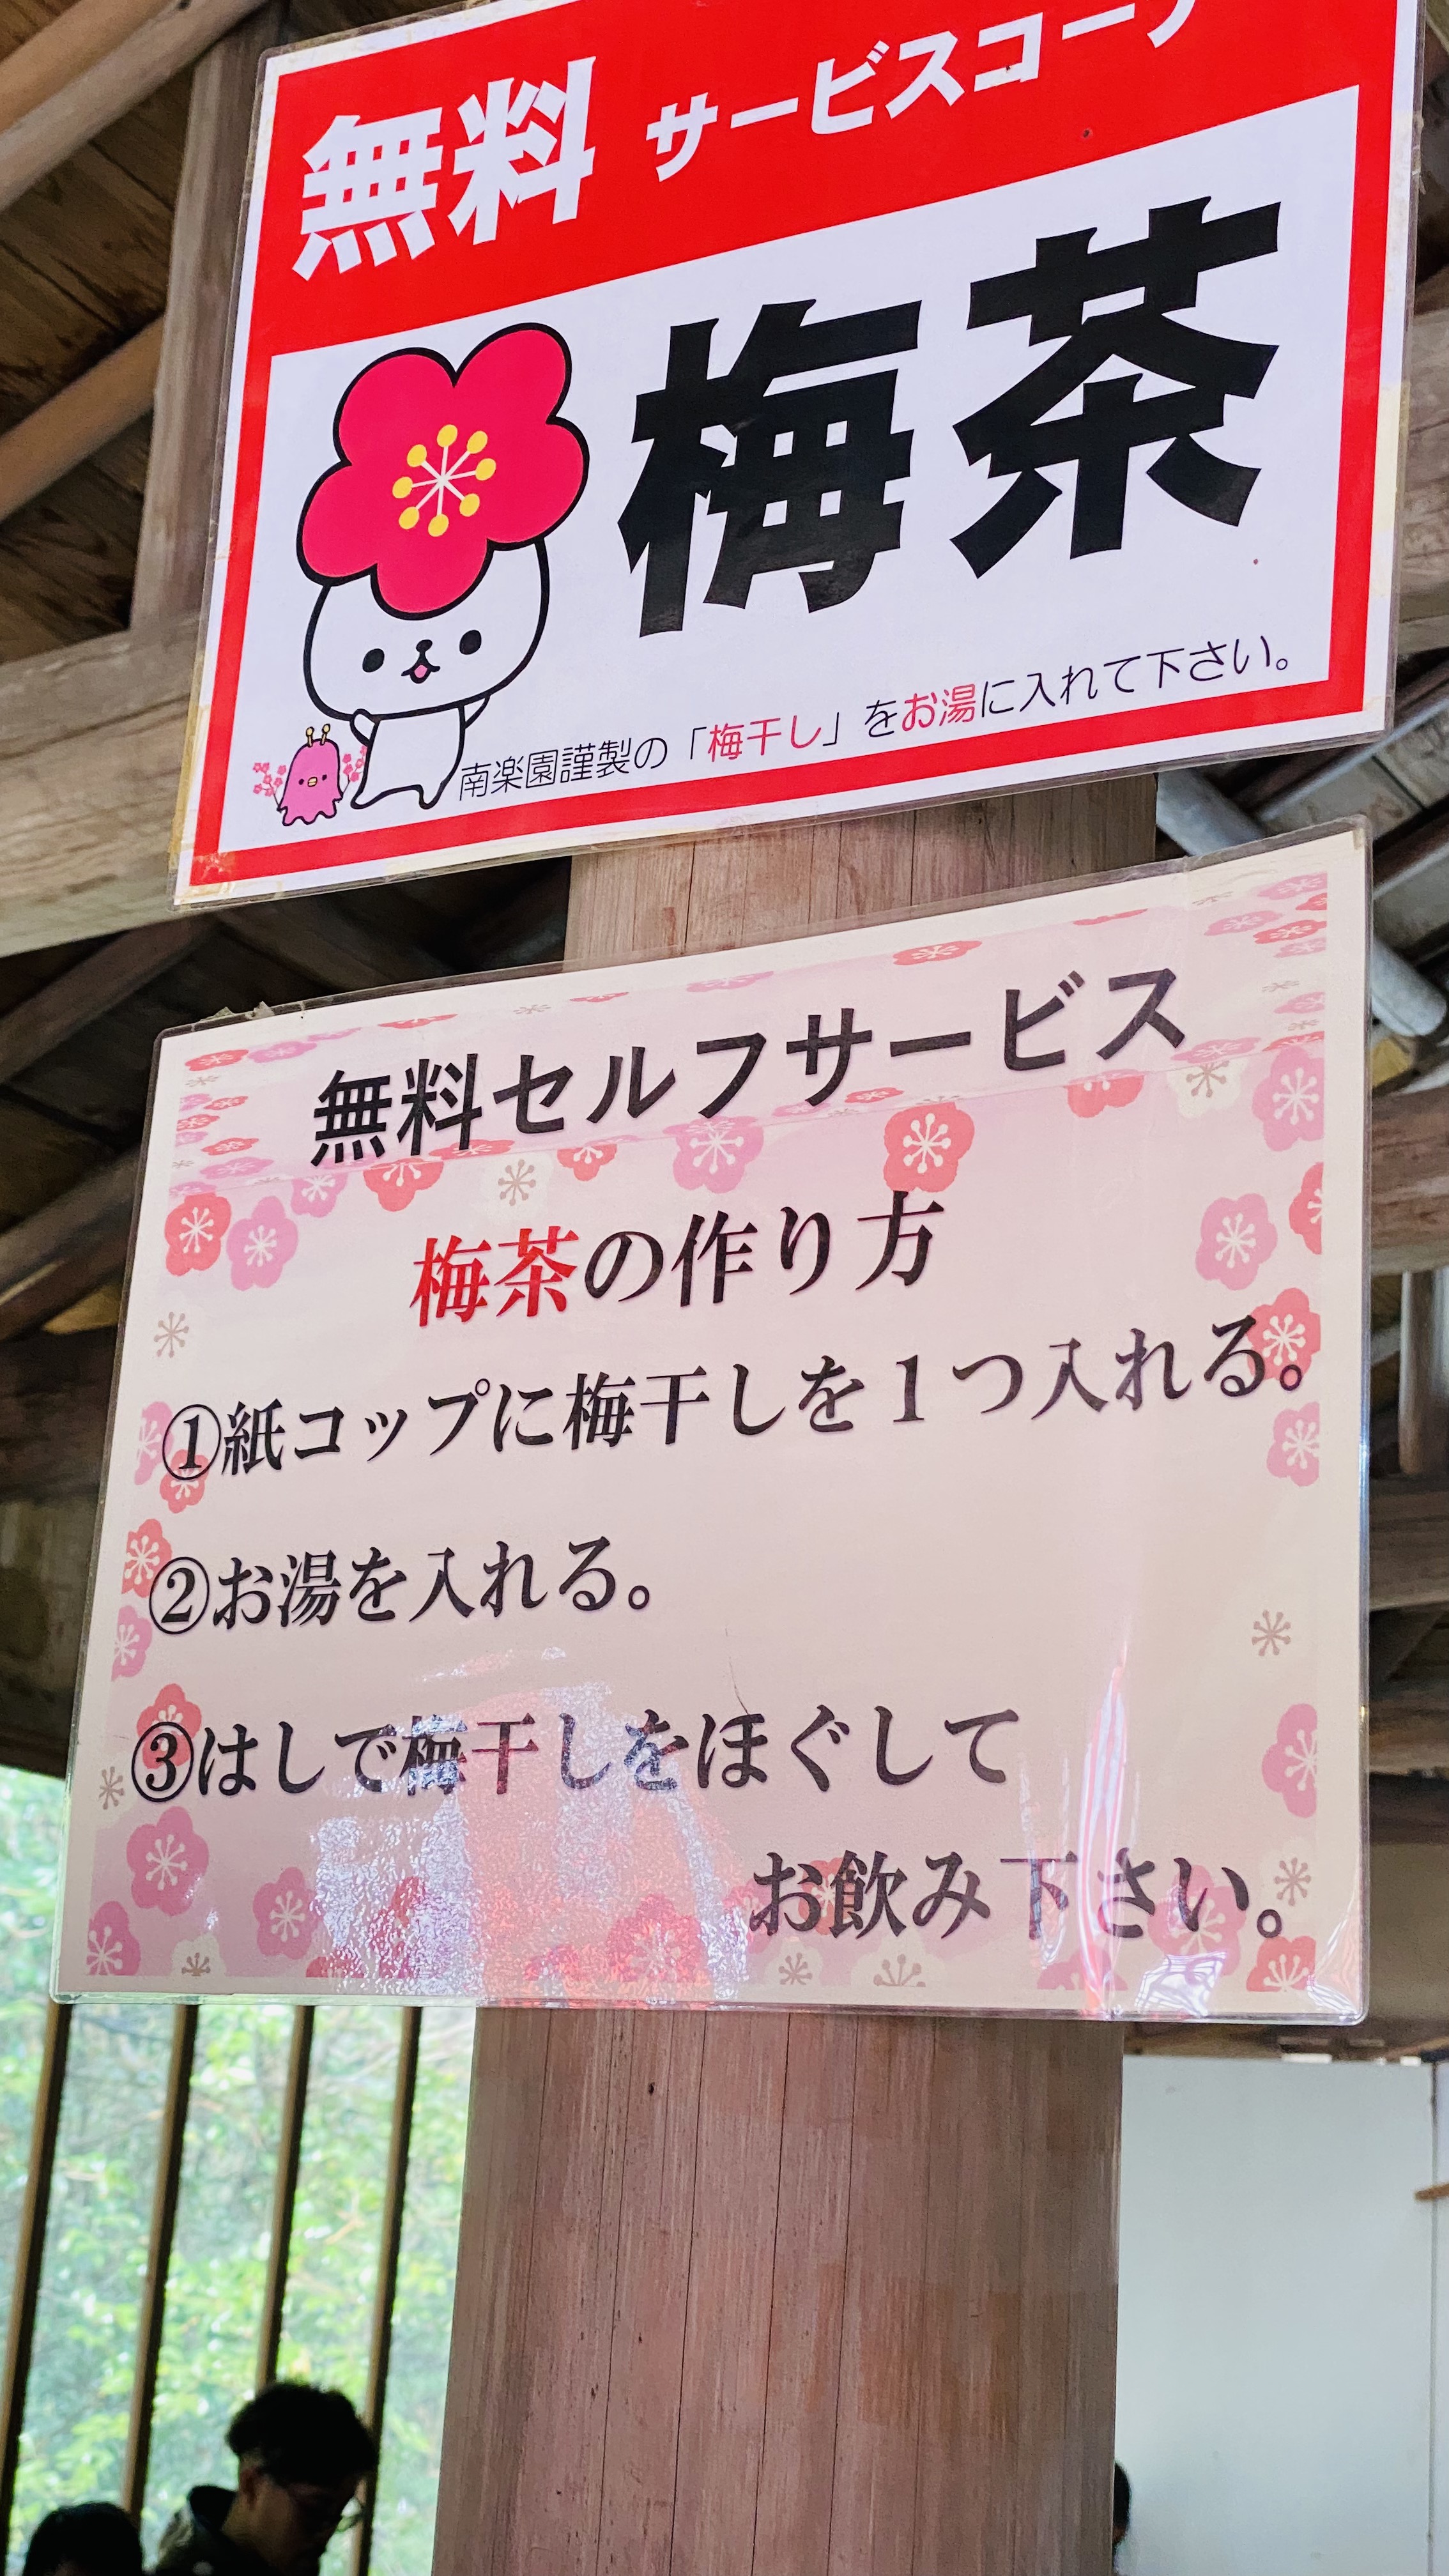 無料 サービスコーナ
梅茶
南楽園謹製の「梅干し」をお湯に入れて下さい。
無料セルフサービス
梅茶の作り方
①紙コップに梅干しを1つ入れる。
②お湯を入れる。
③はしで梅干しをほぐして
お飲み下さい。